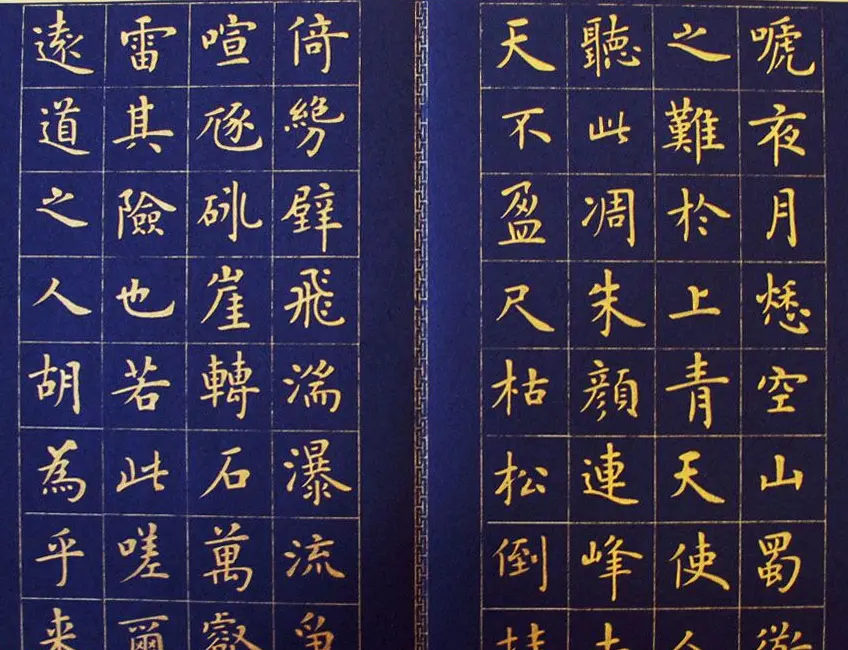 嗁夜月愁空山蜀衜
之難於上青天使人
聽此凋朱顏連峰去
天不盈尺枯松倒挂
倚絶壁飛湍瀑流爭
喧豗砯崖轉石萬壑
雷其險也若此嗟爾
遠道之人胡為乎来